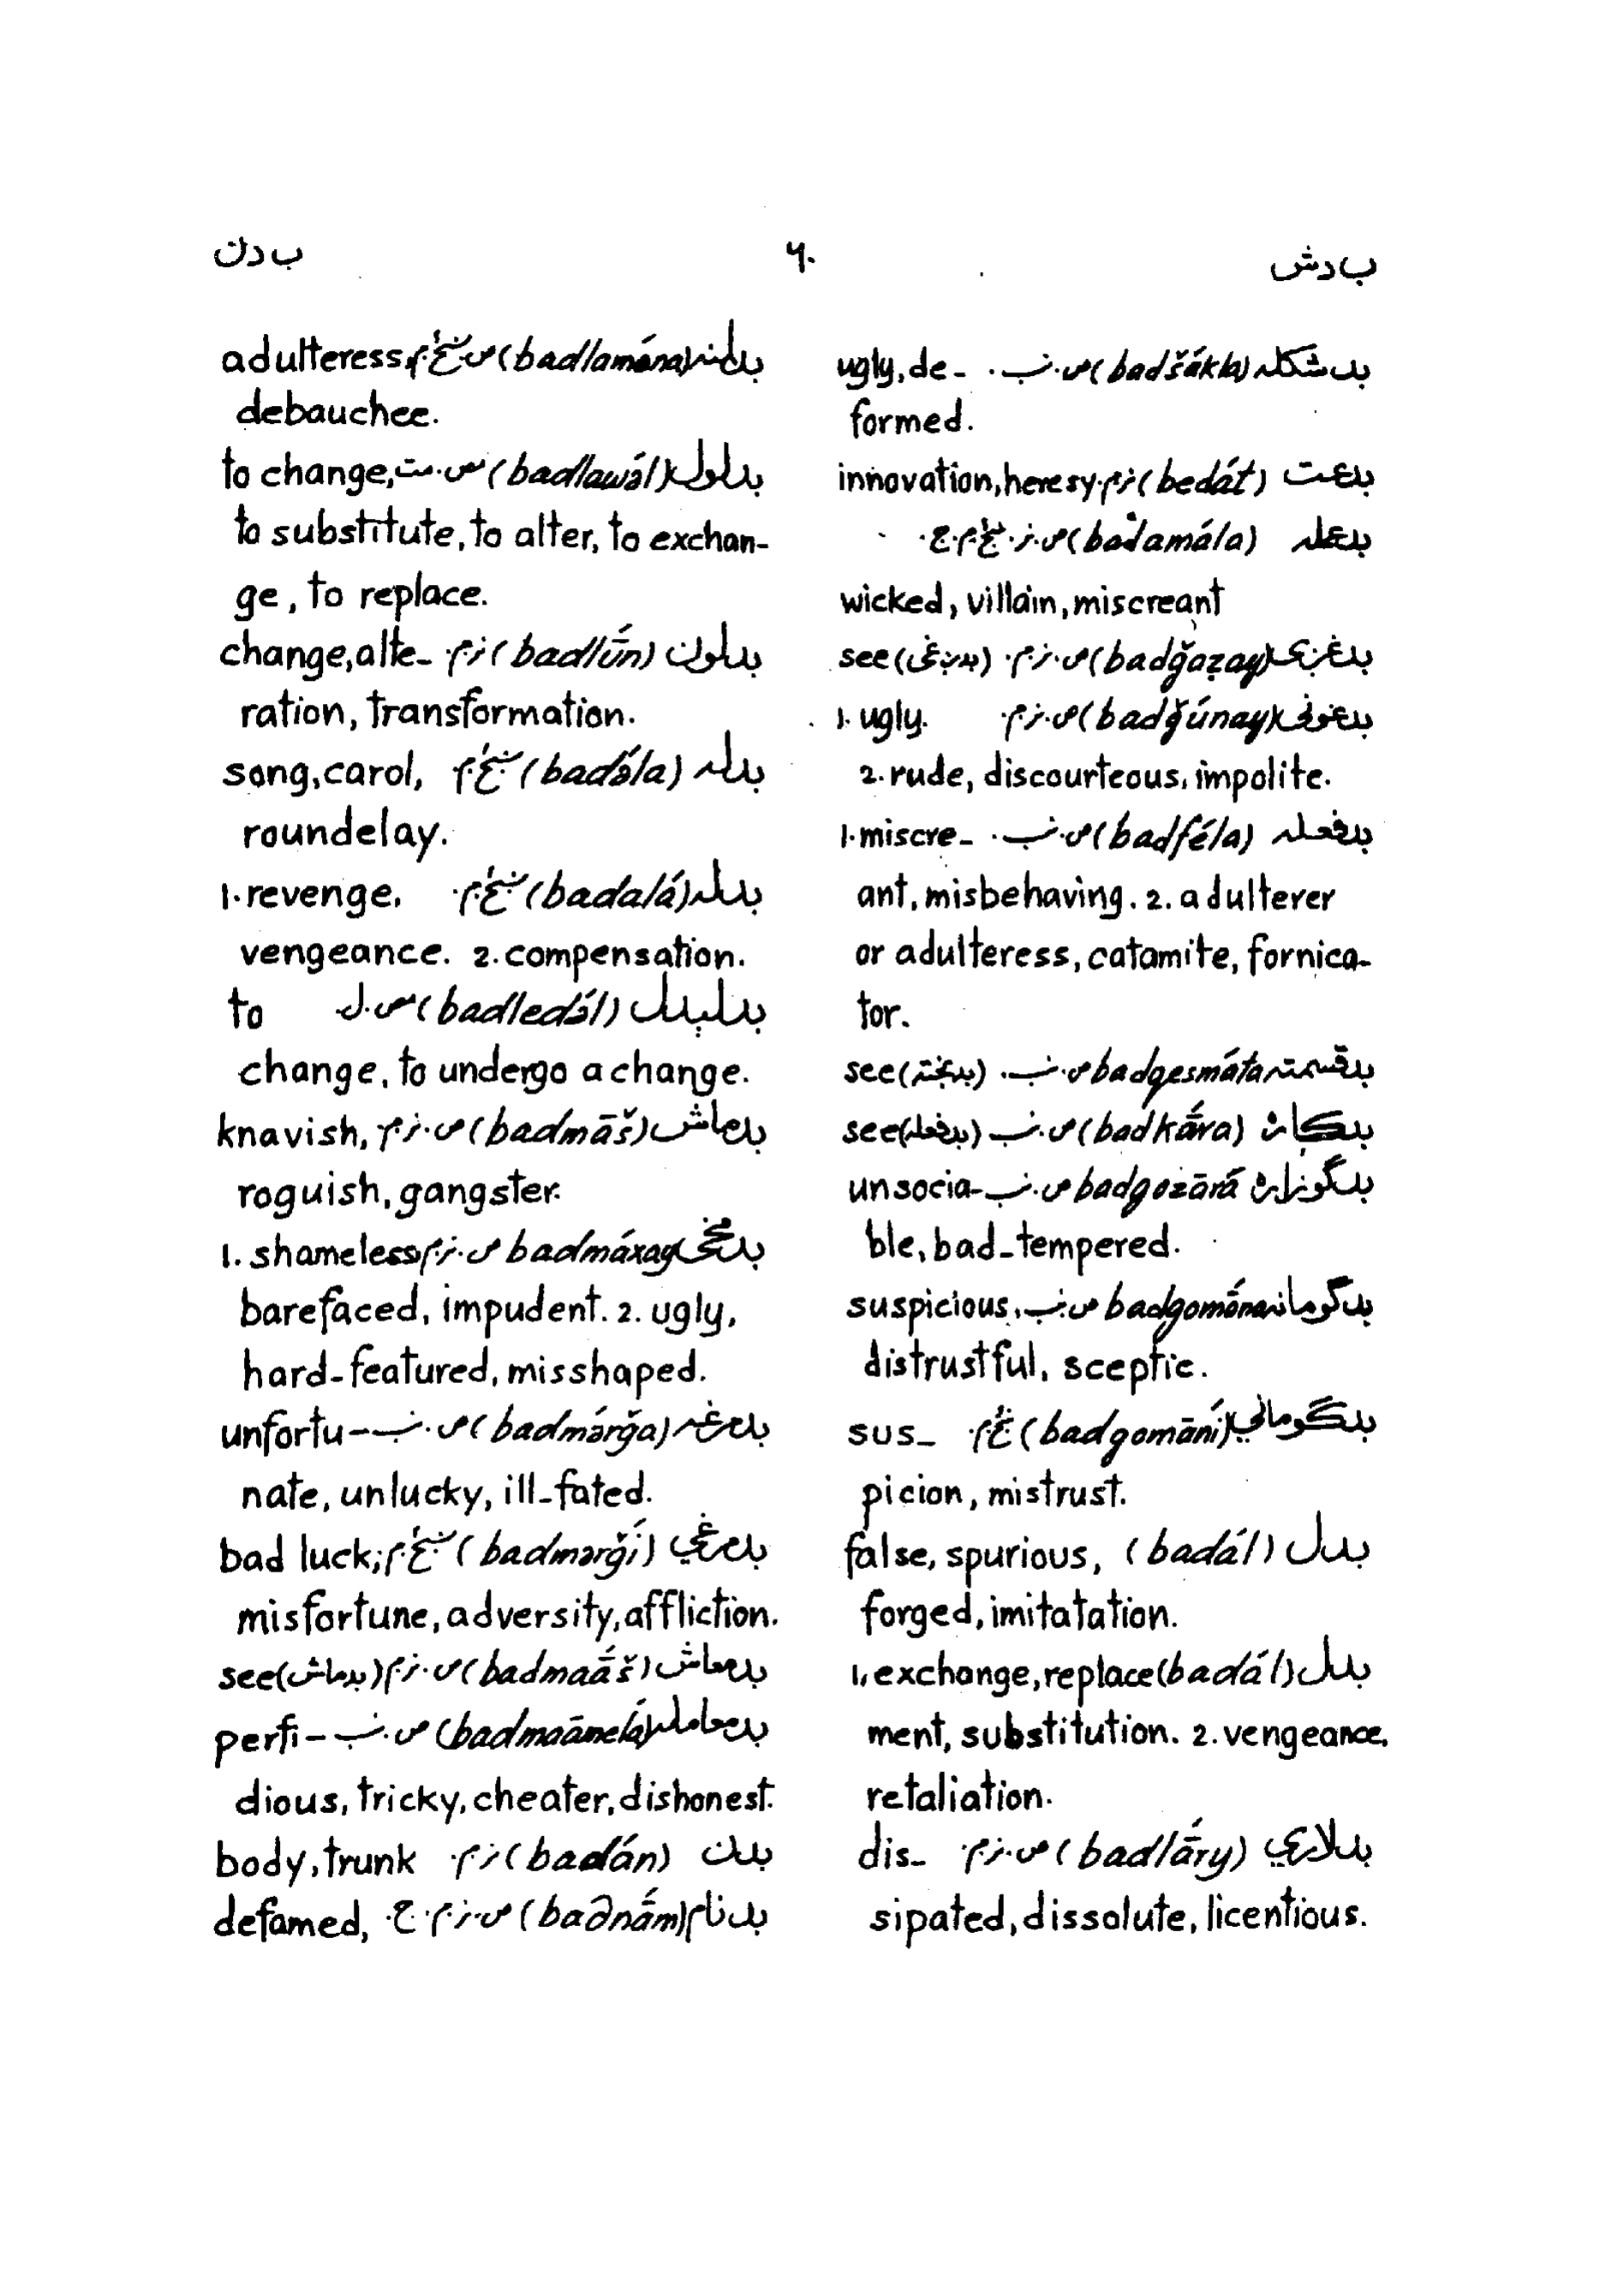 ب دش
۶۰
ب دن
بدشکله (badšákla) ص. ن ب. ugly, de-
formed.
بدعت (bedát) ن م. innovation, heresy.
بدعمله (badamála)
wicked, villain, miscreant
(badğaẓay) ص. ن م. see (بدنغی)
بدغونی (badğúnay) ص. ن م. 1. ugly.
2. rude, discourteous, impolite.
بدفعله (badféla) ص. ن ب. 1. miscre-
ant, misbehaving. 2. adulterer
or adulteress, catamite, fornica-
tor.
بدقسمته badqesmáta ص. ن ب. see (بدبخته)
بدکاره (badkā́ra) ص. ن ب. see (بدفعله)
بدگوزاره badgozārá ص. ن ب. unsocia-
ble, bad-tempered.
بدگومانه badgomā́na ص. ن ب. suspicious,
distrustful, sceptic.
بدگوماني (badgomāní) sus-
picion, mistrust.
بدل (badál) false, spurious,
forged, imitatation.
بدل (badál) 1. exchange, replace
ment, substitution. 2. vengeance,
retaliation.
بدلاري (badlā́ry) ص. ن م. dis-
sipated, dissolute, licentious.
بدلمنه (badlaména) adulteress,
debauchee.
بدلول (badlawə́l) to change,
to substitute, to alter, to exchan-
ge, to replace.
بدلون (badlū́n) ن م. change, alte-
ration, transformation.
بدله (badə́la) song, carol,
roundelay.
بدله (badalá) 1. revenge,
vengeance. 2. compensation.
بدلېدل (badledə́l) to
change, to undergo a change.
بدماش (badmā́š) ص. ن م. knavish,
roguish, gangster.
بدمخی badmáxay ص. ن م. 1. shameless
barefaced, impudent. 2. ugly,
hard-featured, misshaped.
بدمرغه (badmə́rğa) ص. ن ب. unfortu-
nate, unlucky, ill-fated.
بدمرغي (badmərğí) bad luck;
misfortune, adversity, affliction.
بدمعاش (badmaā́š) ص. ن م. see (بدماش)
بدمعامله (badmaāmelá) ص. ن ب. perfi-
dious, tricky, cheater, dishonest.
بدن (badán) ن م. body, trunk
بدنام (badnā́m) ص. ن م. ج. defamed,